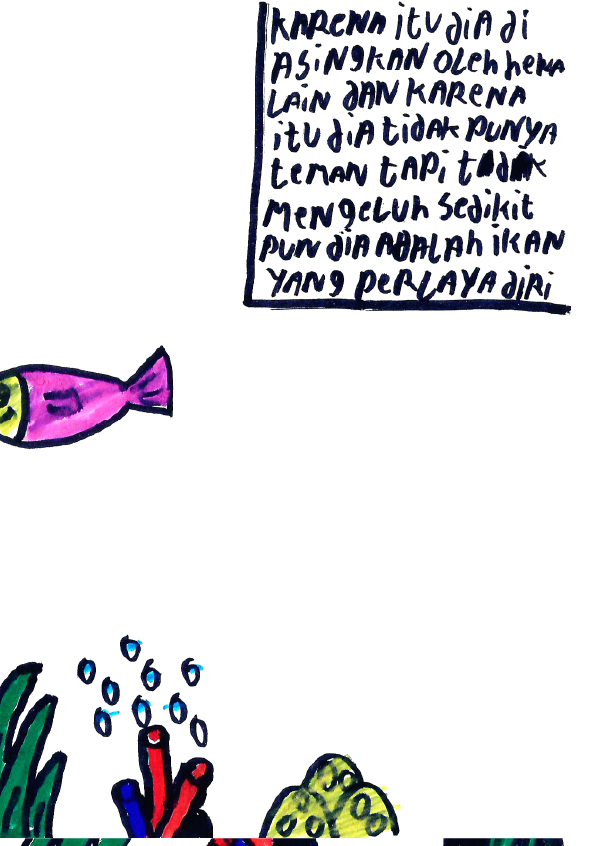 KARENA itU diA di
ASiNgKAN OLeh heWA
LAiN dAN KARENA
itU diA tidAK PUNYA
teMAN tAPi tidAK
MeNgeLUh Sedikit
PUN diA AdALAh iKAN
YANg PeRLAYA diRi